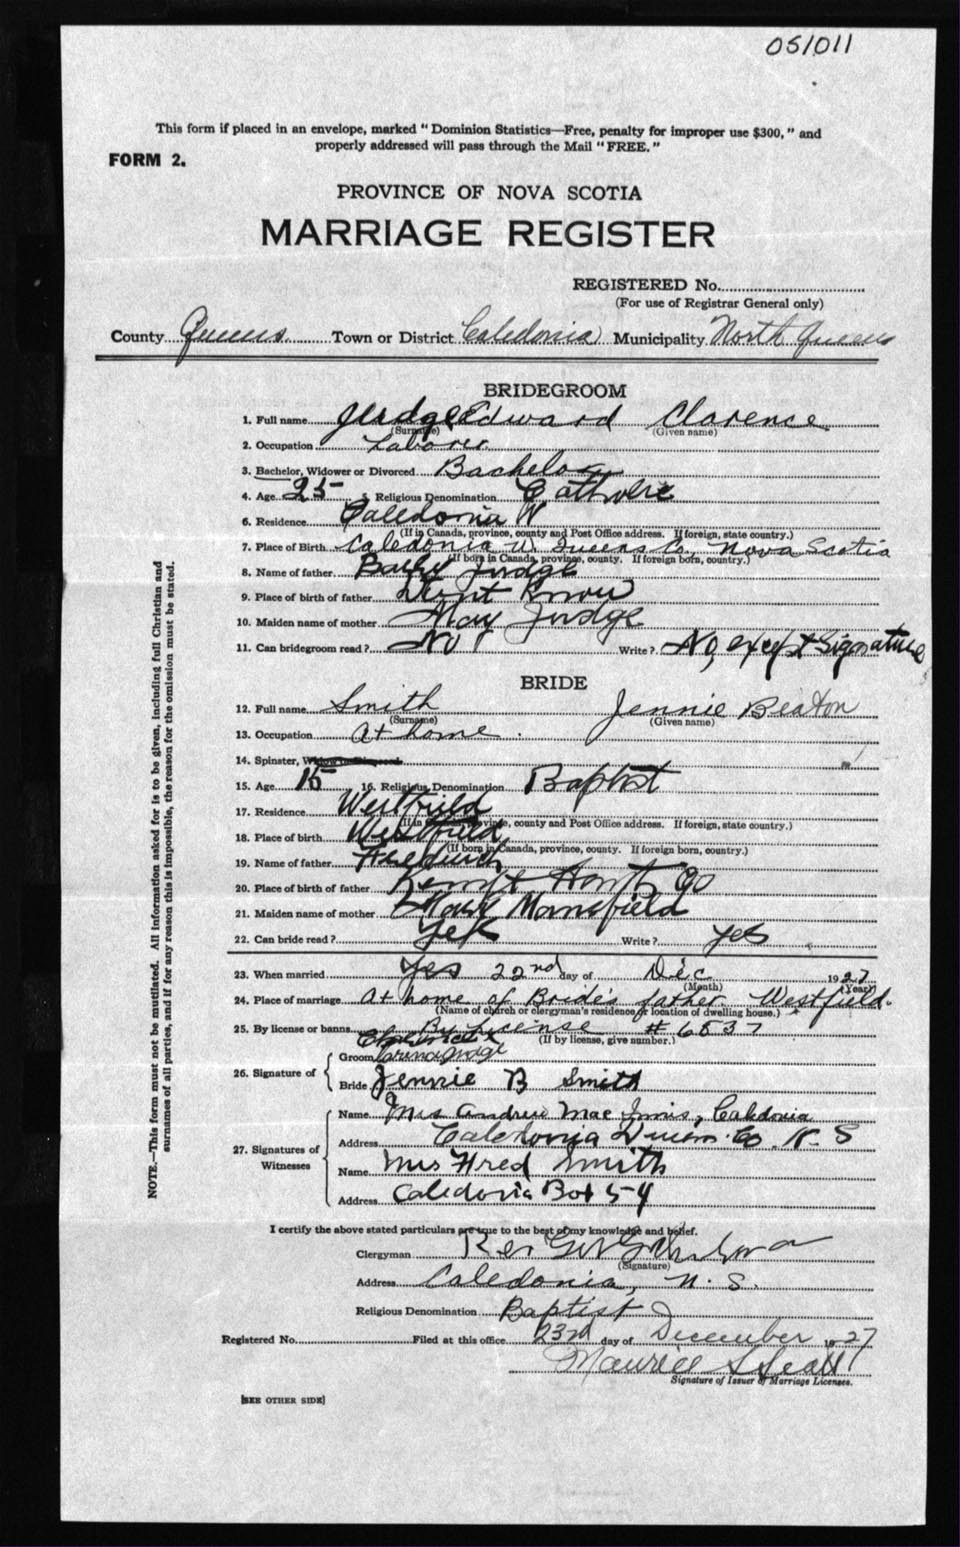 051011
This form if placed in an envelope, marked "Dominion Statistics—Free, penalty for improper use $300," and
properly addressed will pass through the Mail "FREE."
FORM 2.
PROVINCE OF NOVA SCOTIA
MARRIAGE REGISTER
REGISTERED No.
(For use of Registrar General only)
County Queens Town or District Caledonia Municipality North Queens
BRIDEGROOM
1. Full name Judge Edward Clarence
(Surname) (Given name)
2. Occupation Laborer
3. Bachelor, Widower or Divorced Bachelor
4. Age 25 5 Religious Denomination Catholic
6. Residence Caledonia W
(If in Canada, province, county and Post Office address. If foreign, state country.)
7. Place of Birth Caledonia W. Queens Co, Nova Scotia
(If born in Canada, province, county. If foreign born, country.)
8. Name of father Judge
9. Place of birth of father Dont Know
10. Maiden name of mother May Judge
11. Can bridegroom read? No Write? No, except Signature
BRIDE
12. Full name Smith Jennie Beaton
(Surname) (Given name)
13. Occupation At home
14. Spinster, Widow or Divorced
15. Age 15 16. Religious Denomination Baptist
17. Residence Westfield
(If in Canada, province, county and Post Office address. If foreign, state country.)
18. Place of birth Westfield
(If born in Canada, province, county. If foreign born, country.)
19. Name of father
20. Place of birth of father Kempt
21. Maiden name of mother Mansfield
22. Can bride read? Yes Write? yes
23. When married yes 22nd day of Dec 1927
(Month) (Year)
24. Place of marriage At home of Bride's father Westfield.
(Name of church or clergyman's residence, or location of dwelling house.)
25. By license or banns By License # 6837
(If by license, give number.)
26. Signature of
Groom Judge
Bride Jennie B Smith
27. Signatures of Witnesses
Name Mrs Andrew Mac Innis, Caledonia
Address Caledonia Queens Co. N. S
Name Mrs Fred Smith
Address Caledonia Box 54
I certify the above stated particulars are true to the best of my knowledge and belief.
Clergyman Rev
(Signature)
Address Caledonia, N. S.
Religious Denomination Baptist
Registered No. Filed at this office 23rd day of December 1927
Maurice
Signature of Issuer of Marriage Licenses.
[SEE OTHER SIDE]
NOTE.—This form must not be mutilated. All information asked for is to be given, including full Christian and
surnames of all parties, and if for any reason this is impossible, the reason for the omission must be stated.